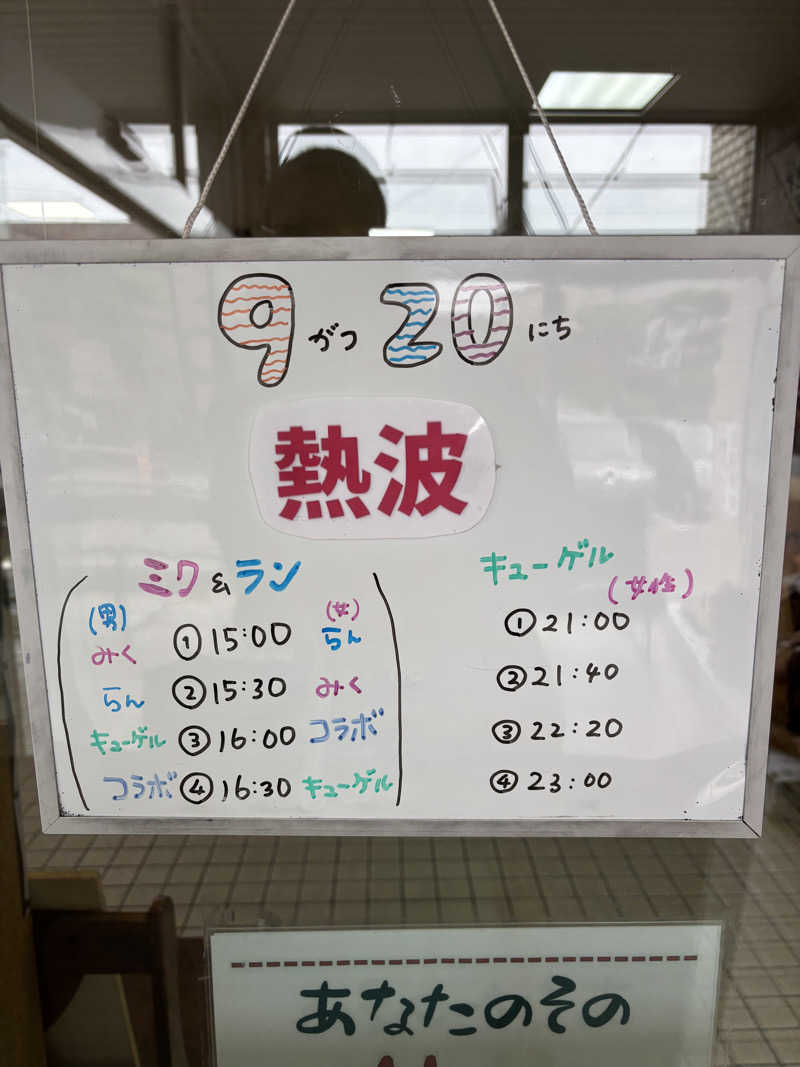 9がつ20にち
熱波
ミク&ラン
(男) (女)
みく ①15:00 らん
らん ②15:30 みく
キューゲル ③16:00 コラボ
コラボ ④16:30 キューゲル
キューゲル
(女性)
①21:00
②21:40
③22:20
④23:00
あなたのその